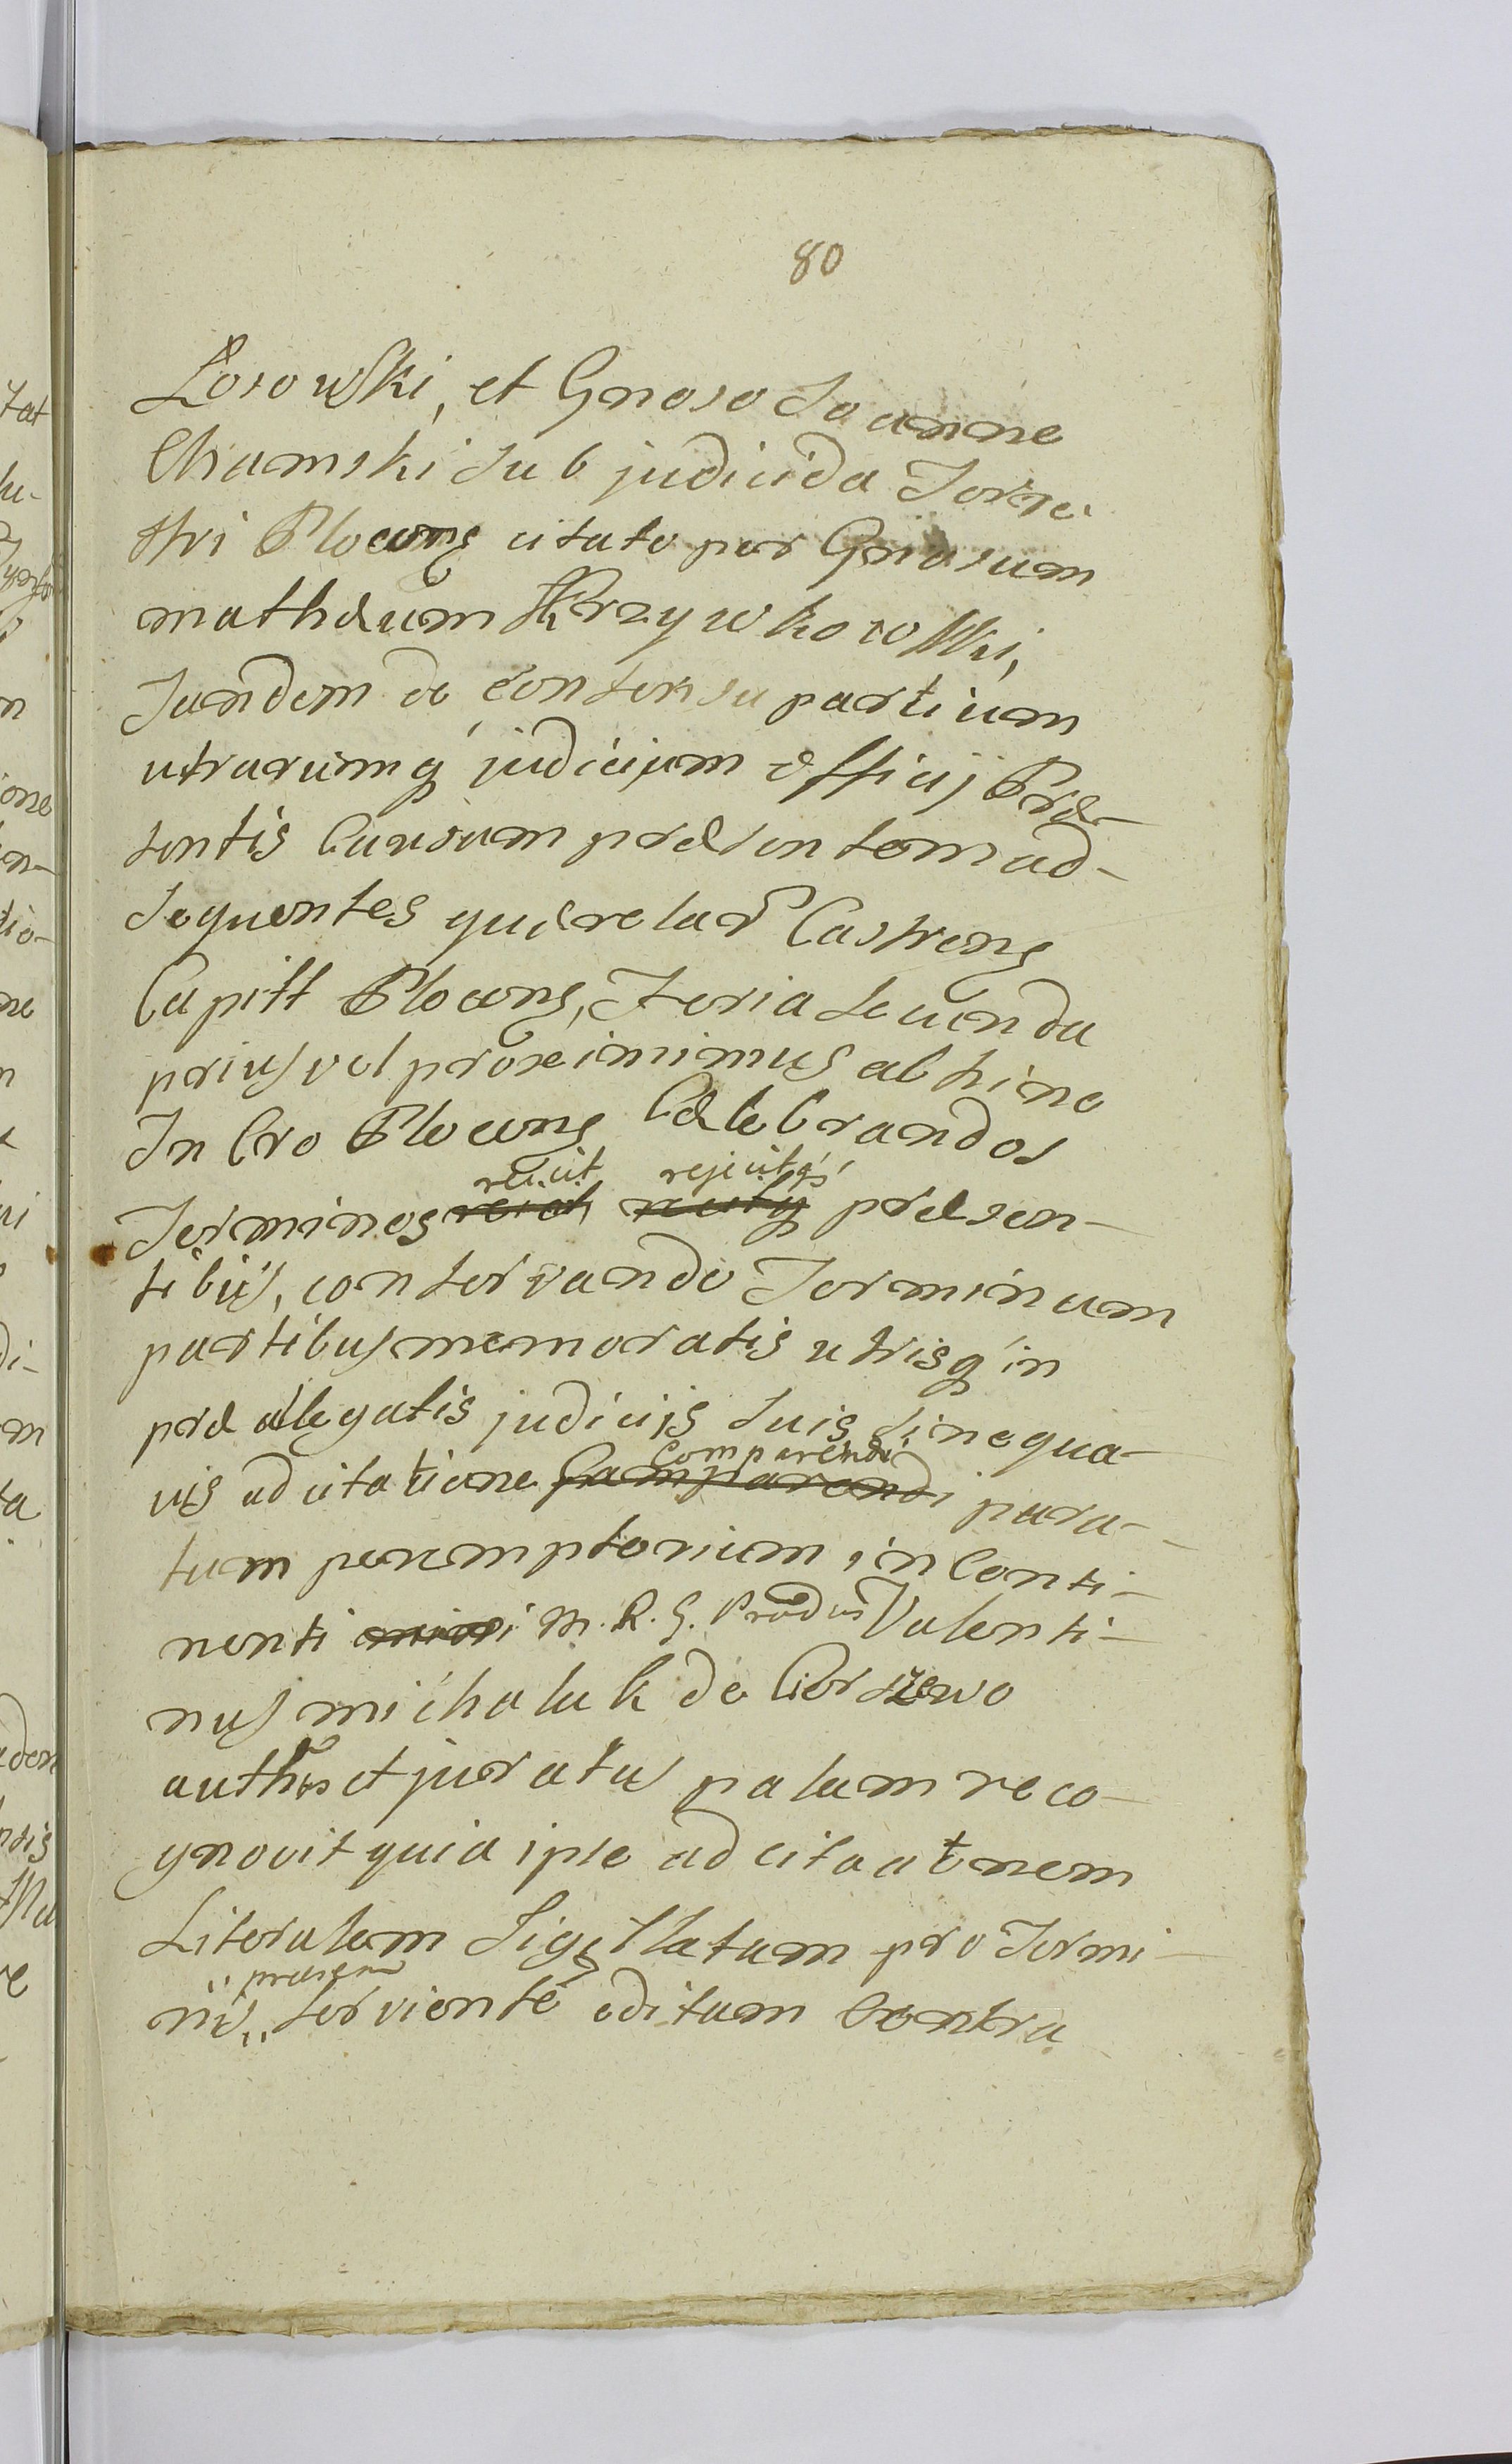 80
Losowski, et Gnoso Joanne
Chamski sub judicida Terre
stri Plocens citato per Gnosum
mathæum Krzywkowski,
Tandem de consensu partium
utrarumq́ judicium Officij Præ-
sentis Causam præsentem ad-
sequentes quærelar Castrens
Capitt Plocens, Feria secunda
prius vel proximimus abhinc
In Cro Plocens Cælebrandos
reiicit rejicitq́,
Terminos præsen-
tibus, conservando Terminum
partibus memoratis utrisq́ in
præallegatis judicijs suis sine qua-
Comparendi
vis adcitatione Comparendi para-
tum peremptorium, in Conti-
nenti M. R. G. Prædus Valenti-
nus michaluk de Cierszewo
authus et juratus palam reco-
gnovit quia ipse adcitaatnem
Literalem Sigillatam pro Termi-
præsen
nis,, serviente editam Contra